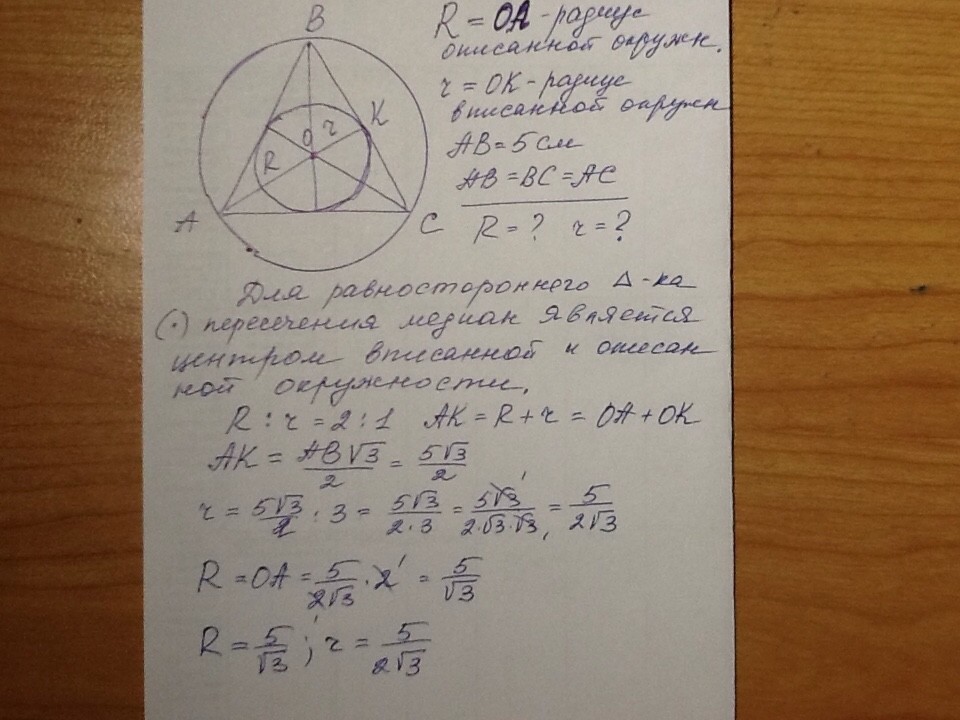 B
K
O
r
R
A
C
R = OA - радиус
описанной окружн.
r = OK - радиус
вписанной окружн
AB = 5 см
AB = BC = AC
R = ? r = ?
Для равностороннего Δ-ка
(·) пересечения медиан является
центром вписанной и описан
ной окружности.
R : r = 2 : 1 AK = R + r = OA + OK
AK = AB√3/2 = 5√3/2
r = 5√3/2 : 3 = 5√3/2·3 = 5√3/2·√3·√3 = 5/2√3
R = OA = 5/2√3 · 2 = 5/√3
R = 5/√3 ; r = 5/2√3